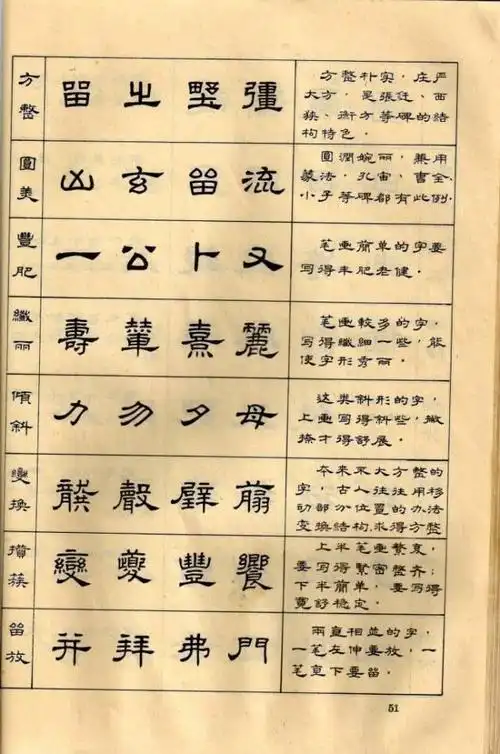 方整
留 㞢 壁 彊
方整朴实,庄严
大方,是張迁、西
狭、衡方等碑的结
构特色。
圓美
凶 玄 留 流
圓潤婉丽,兼用
篆法,孔宙、曹全、
小子等碑都有此例。
豐肥
一 公 卜 又
笔画簡单的字要
写得丰肥老健。
纖丽
壽 輦 熹 麗
笔画較多的字,
写得纖細一些,能
使字形秀丽。
傾斜
力 勿 夕 母
这类斜形的字,
上画写得斜些,撇
捺才得舒展。
變換
龔 璧 翦
本来不大方整的
字,古人往往用移
动部分位置的办法
变換结构,求得方整
攢蔟
變 夔 豐 饗
上半笔画繁复,
要写得緊密整齐;
下半簡单,要写得
寬舒稳定。
留放
并 拜 弗 門
兩直相並的字,
一笔左伸要放,一
笔直下要留。
51